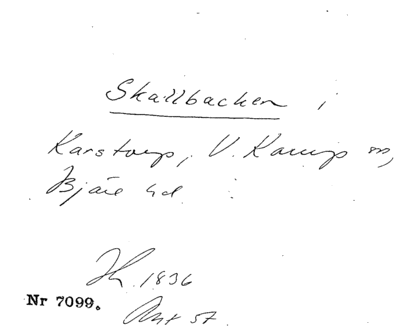 Skallbacken i
Karstorp, V. Karup sn,
Bjäre hd
Jh. 1836
Nr 7099. Akt 57